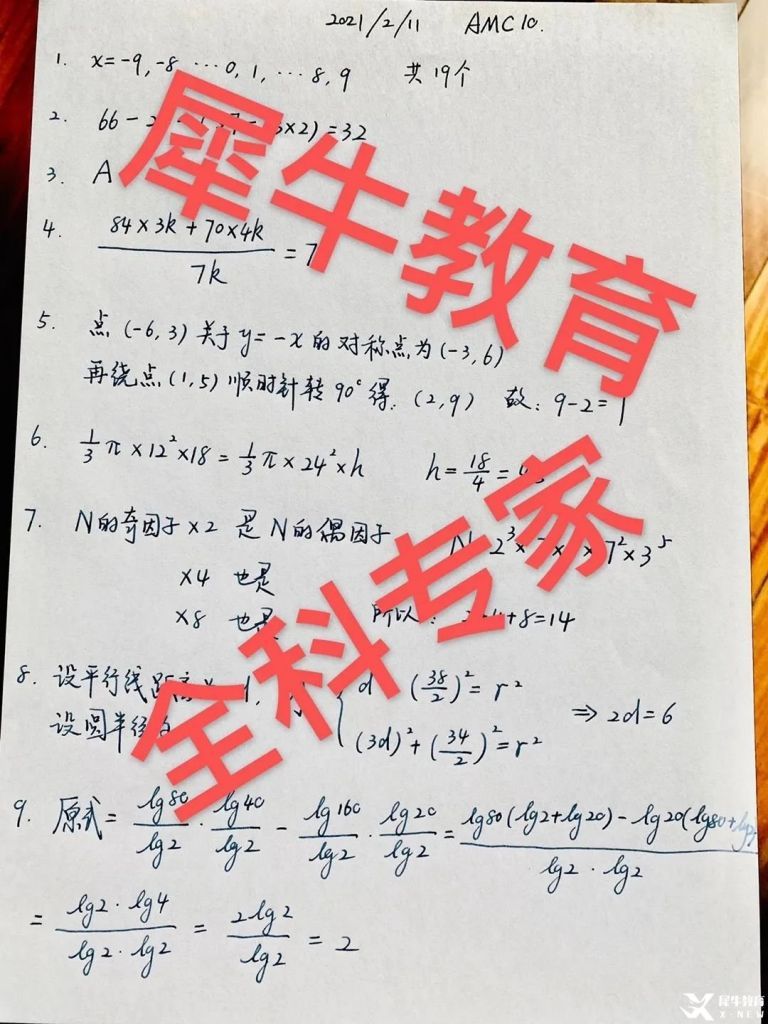 2021/2/11 AMC10.
1. x=-9,-8 ⋯0, 1, ⋯8, 9 共19个
2. 66- ×2)=32
3. A
4. 84×3k+70×4k
/7k =7
5. 点 (-6,3) 关于 y=-x 的对称点为 (-3,6)
再绕点 (1,5) 顺时针转 90° 得: (2,9) 故: 9-2=
6. 1/3 π×12²×18=1/3 π×24²×h h=18/4=4.5
7. N的奇因子×2 是N的偶因子 N 2³× × ×7²×3⁵
×4 也是
×8 也是 所以: +4+8=14
8. 设平行线 d, d (38/2)²=r²
设圆半径为 (3d)²+(34/2)²=r² ⇒2d=6
9. 原式= lg80/lg2 · lg40/lg2 - lg160/lg2 · lg20/lg2 = lg80(lg2+lg20)-lg20(lg80+lg2)/lg2·lg2
= lg2·lg4/lg2·lg2 = 2lg2/lg2 = 2
犀牛教育
全科专家
犀牛教育
X-NEW